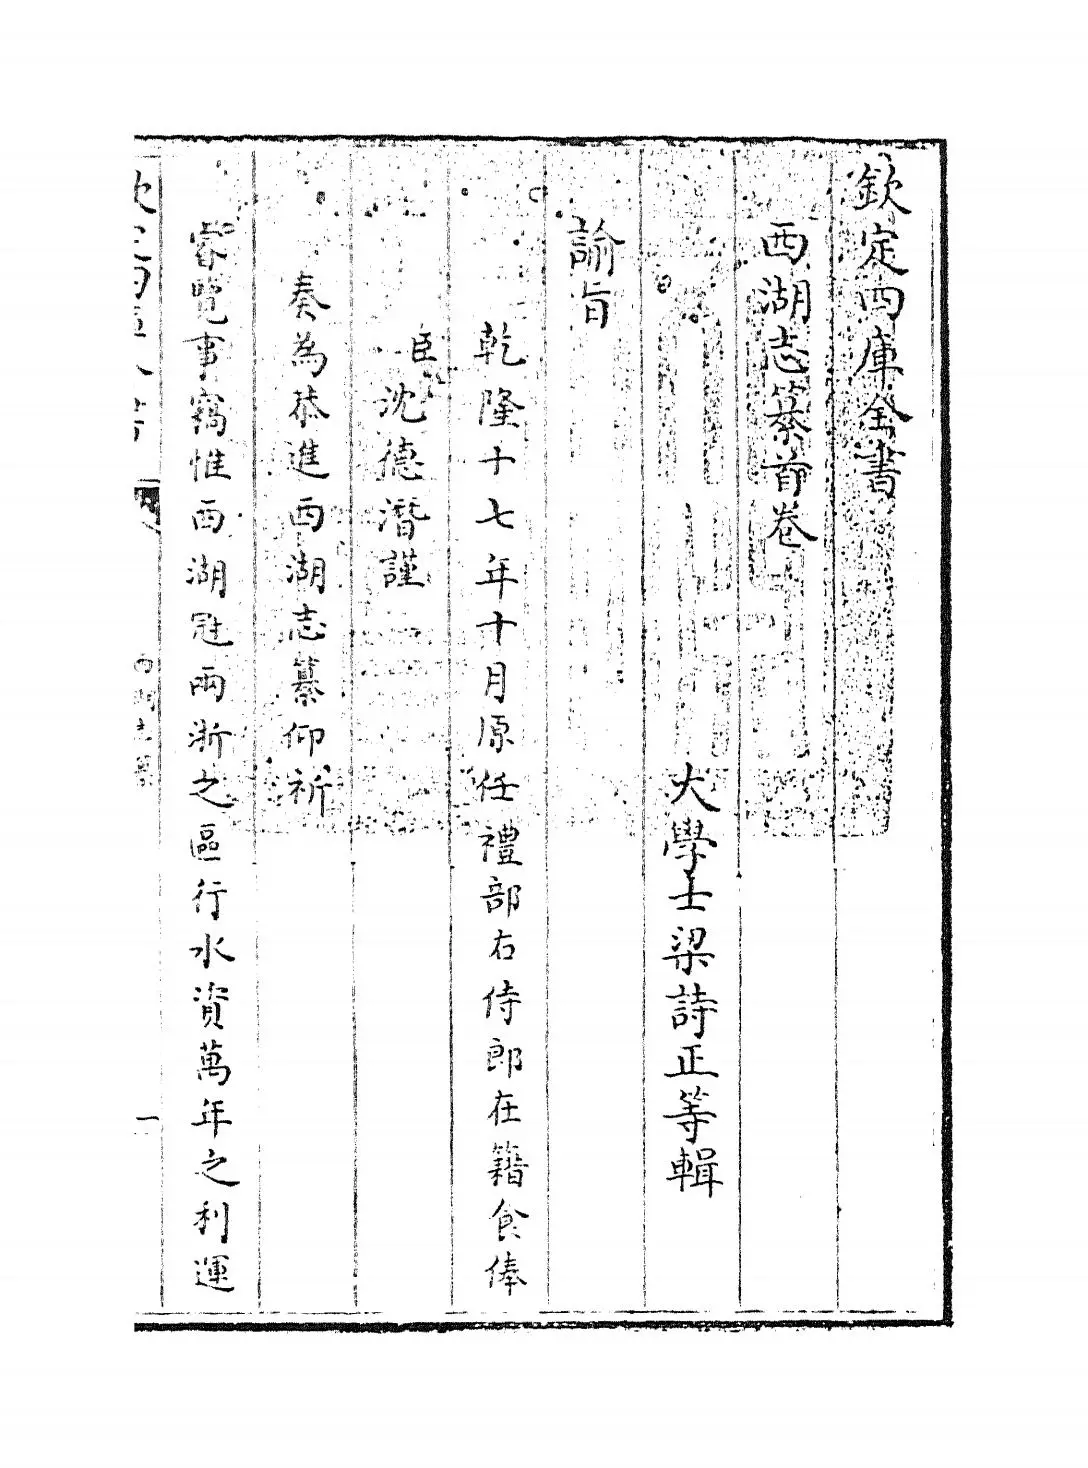 欽定四庫全書
西湖志纂首卷
大學士梁詩正等輯
諭旨
乾隆十七年十月原任禮部右侍郎在籍食俸
臣沈德潛謹
奏為恭進西湖志纂仰祈
睿覽事竊惟西湖冠兩浙之區行水資萬年之利運
西湖志纂
一